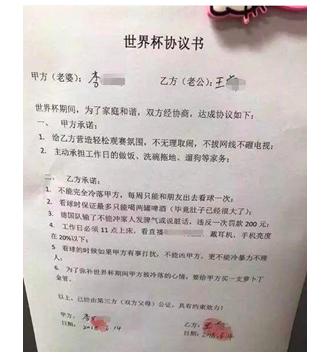 世界杯协议书
甲方（老婆）：李 乙方（老公）：王
世界杯期间，为了家庭和谐，双方经协商，达成协议如下：
一、 甲方承诺：
1. 给乙方营造轻松观赛氛围，不无理取闹，不拔网线不砸电视；
2. 主动承担工作日的做饭、洗碗拖地、遛狗等家务；
二、 乙方承诺：
1. 不能完全冷落甲方，每周只能和朋友出去看球一次；
2. 看球时保证最多只能喝两罐啤酒（毕竟肚子已经很大了）；
3. 德国队输了不能冲家人发脾气或说脏话，违反一次罚款 200 元；
4. 工作日必须 11 点上床，看直播 戴耳机，手机亮度
在 20%以下；
5. 看球的时候如果甲方有事打扰，不能凶甲方，更不能冷暴力不理
人；
6. 为了弥补世界杯期间甲方被冷落的心情，要给甲方买一支萝卜丁
金管。
以上，已经由第三方（双方父母）公证，具有约束效力！
甲方：李 乙方：王
日期：2018.6.14 日期：2018.6.14